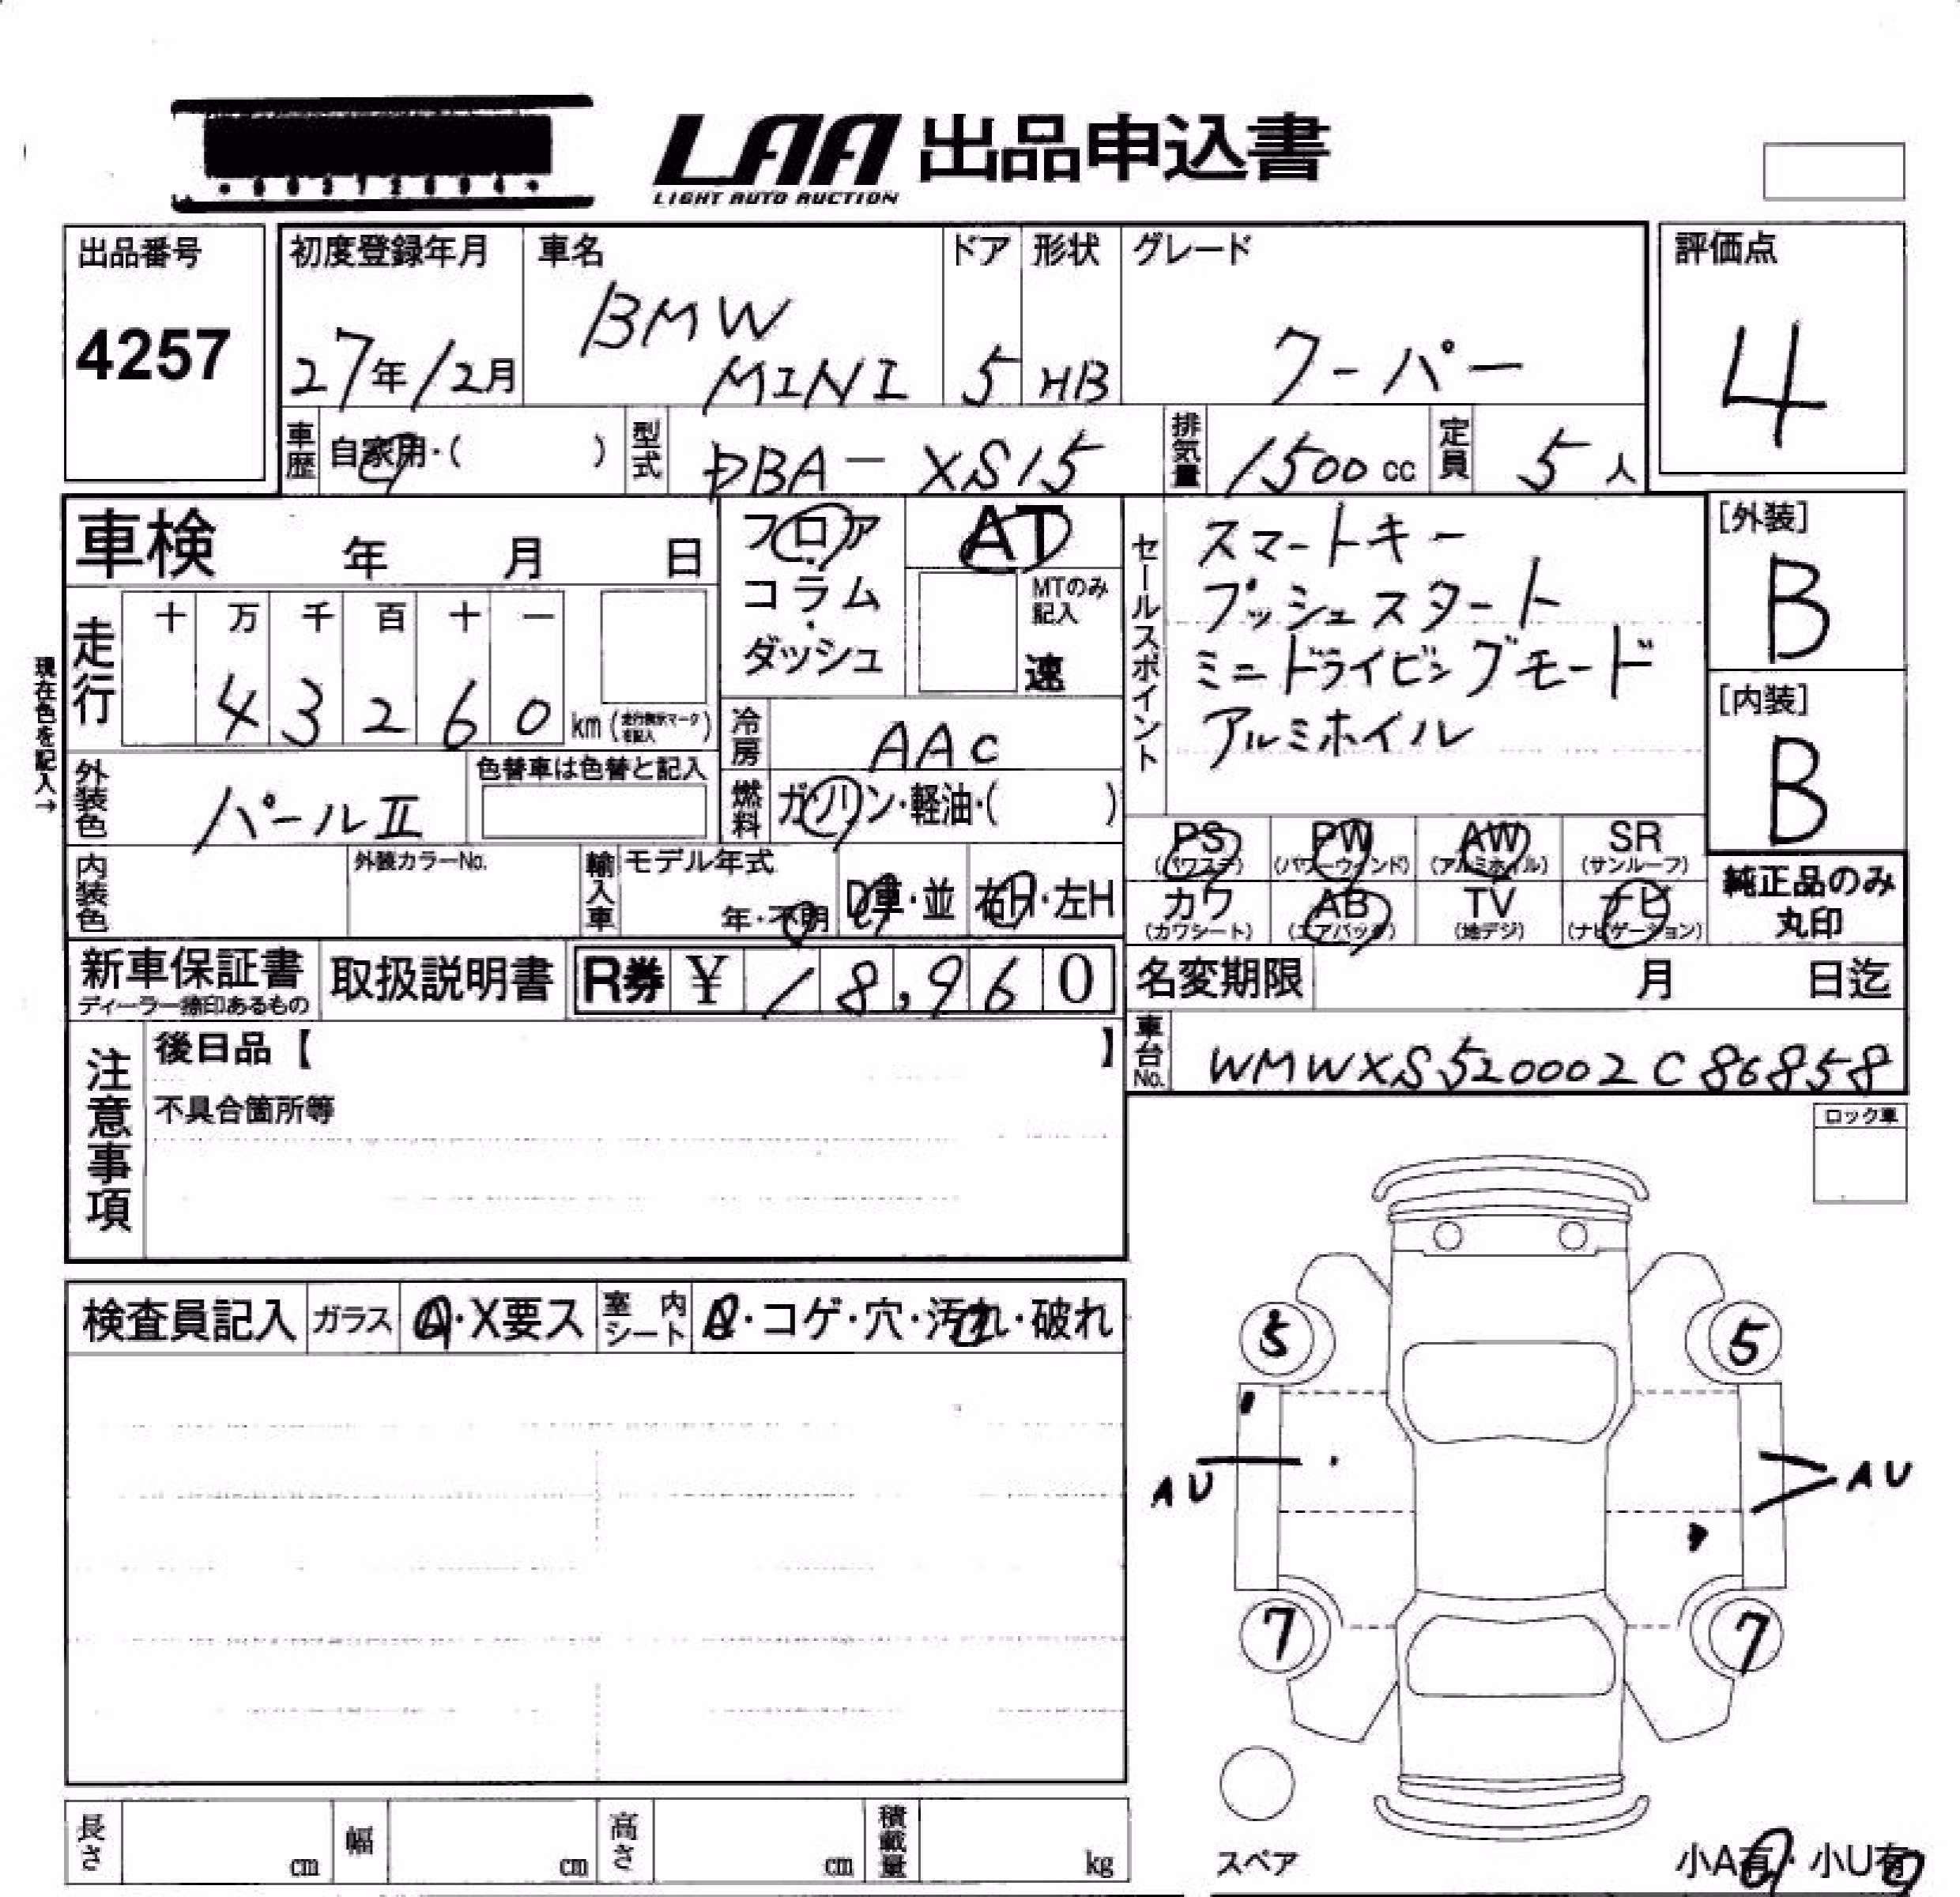 LAA 出品申込書
LIGHT AUTO AUCTION
出品番号
4257
初度登録年月
27年12月
車名
BMW
MINI
ドア
5
形状
HB
グレード
クーパー
評価点
4
車歴
自家用・( )
型式
DBA-XS15
排気量
1500cc
定員
5人
車検 年 月 日
フロア
コラム
ダッシュ
AT
MTのみ
記入
速
セールスポイント
スマートキー
プッシュスタート
ミニドライビングモード
アルミホイル
[外装]
B
[内装]
B
現在色を記入→
走行
十 万 千 百 十 一
4 3 2 6 0 km
冷房
AAC
外装色
パールII
色替車は色替と記入
燃料
ガソリン・軽油・( )
PS PW AW SR
(パワステ) (パワーウィンド) (アルミホイル) (サンルーフ)
カワ AB TV ナビ
(カワシート) (エアバック) (地デジ) (ナビゲーション)
純正品のみ
丸印
内装色
外装カラーNo.
輸入車
モデル年式
年・不明
D車・並
右H・左H
新車保証書
ディーラー捺印あるもの
取扱説明書
R券 ¥ 18,960
名変期限 月 日迄
車台No.
WMWXS520002C86858
注意事項
後日品【 】
不具合箇所等
ロック車
検査員記入
ガラス
A・X要ス
室内
シート
・コゲ・穴・汚れ・破れ
5
5
AU
AU
7
7
スペア
小A有・小U有
長さ cm
幅 cm
高さ cm
積載量 kg